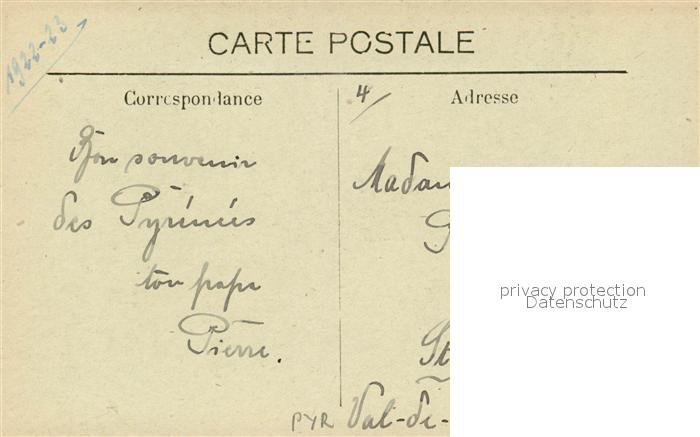 1922-23
CARTE POSTALE
Correspondance
4/
Adresse
Bon souvenir
des Pyrénées
ton papa
Pierre.
Madam
G
St
PYR Val-de-
privacy protection
Datenschutz